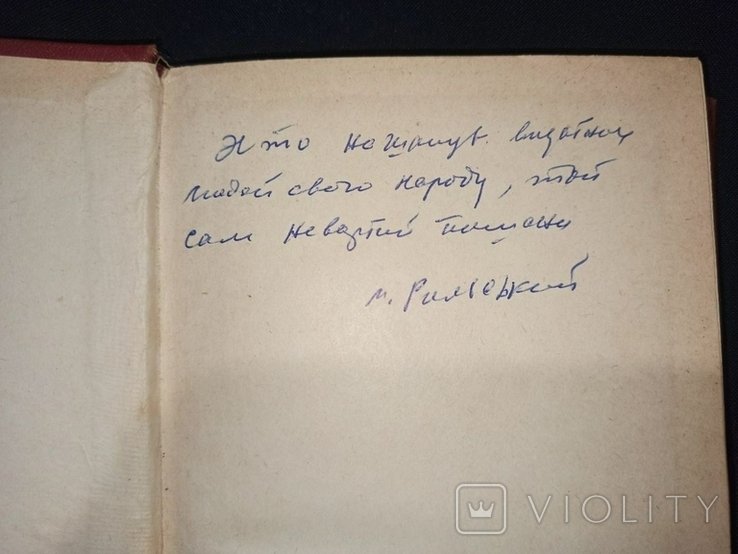 Хто не шанує видатних
людей свого народу, той
сам невартий пошани
М. Рильський
VIOLITY